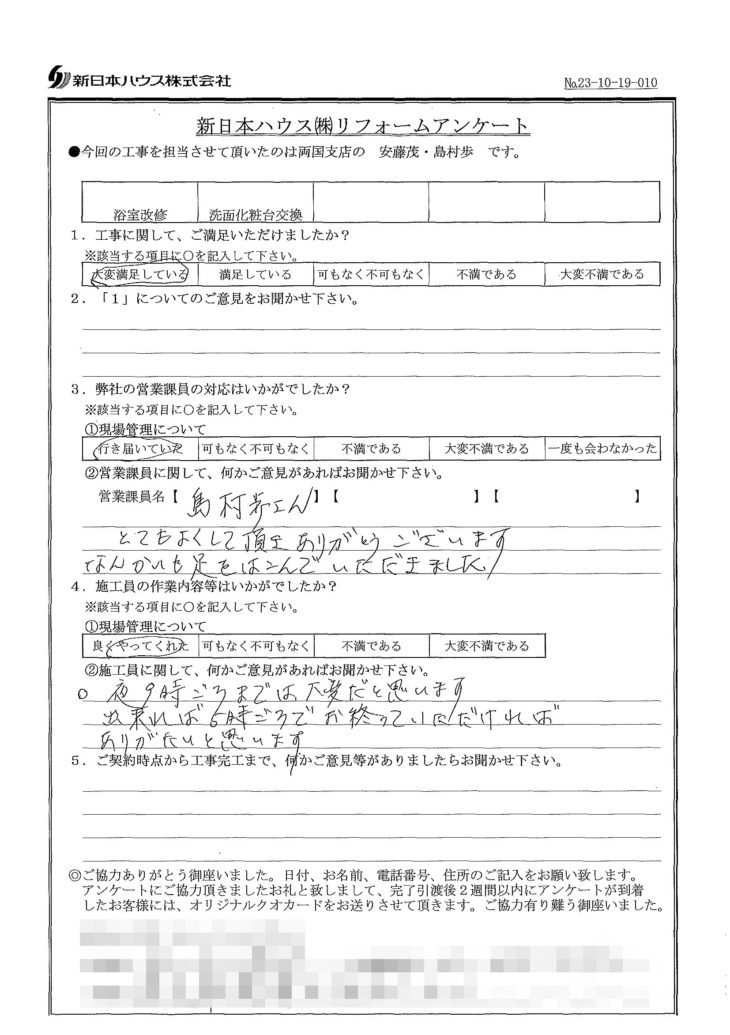 新日本ハウス株式会社
№23-10-19-010
新日本ハウス㈱リフォームアンケート
●今回の工事を担当させて頂いたのは両国支店の 安藤茂・島村歩 です。
浴室改修 洗面化粧台交換
1．工事に関して、ご満足いただけましたか？
※該当する項目に○を記入して下さい。
大変満足している 満足している 可もなく不可もなく 不満である 大変不満である
2．「1」についてのご意見をお聞かせ下さい。
3．弊社の営業課員の対応はいかがでしたか？
※該当する項目に○を記入して下さい。
①現場管理について
行き届いていた 可もなく不可もなく 不満である 大変不満である 一度も会わなかった
②営業課員に関して、何かご意見があればお聞かせ下さい。
営業課員名【 島村歩さん 】【 】【 】
とてもよくして頂き ありがとう ございます
なんかいも 足をはこんで いただきました
4．施工員の作業内容等はいかがでしたか？
※該当する項目に○を記入して下さい。
①現場管理について
良くやってくれた 可もなく不可もなく 不満である 大変不満である
②施工員に関して、何かご意見があればお聞かせ下さい。
○ 夜9時ごろまでは大変だと思います
出来れば6時ごろでお終っていただければ
ありがたいと思います
5．ご契約時点から工事完工まで、何かご意見等がありましたらお聞かせ下さい。
◎ご協力ありがとう御座いました。日付、お名前、電話番号、住所のご記入をお願い致します。
アンケートにご協力頂きましたお礼と致しまして、完了引渡後２週間以内にアンケートが到着
したお客様には、オリジナルクオカードをお送りさせて頂きます。ご協力有り難う御座いました。